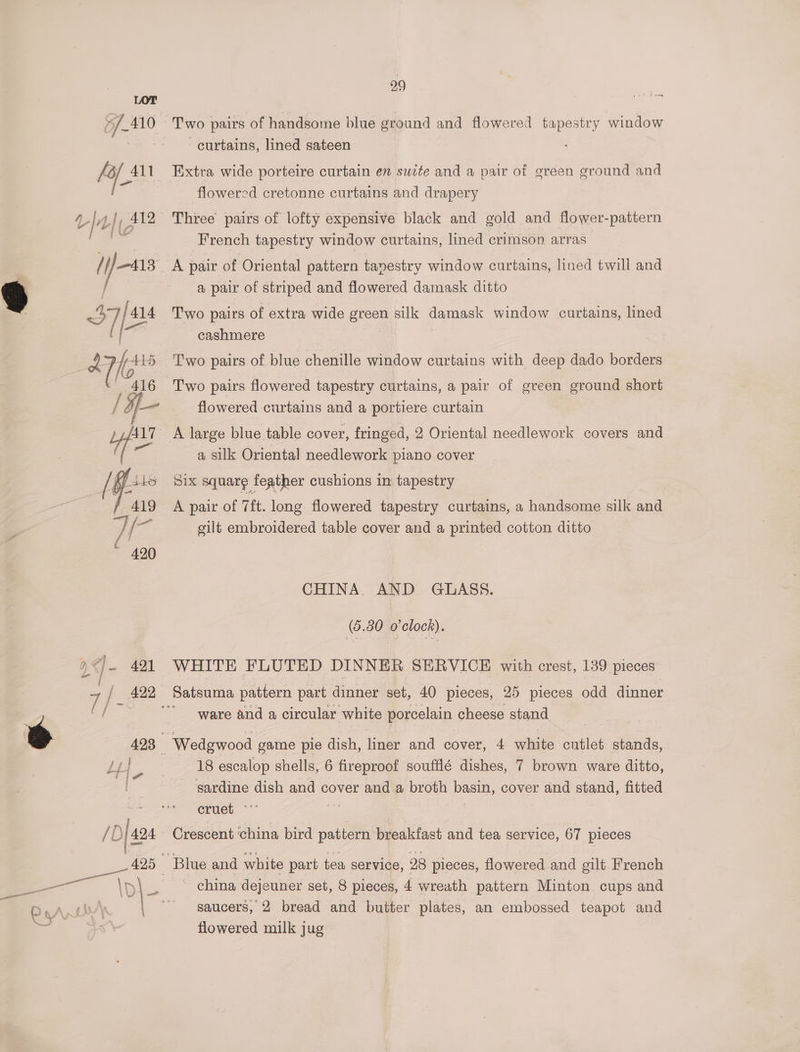 29
LOT
410 Two pairs of handsome blue ground and flowered tapestry window
curtains, lined sateen
411 Extra wide porteire curtain en suite and a pair of green ground and
flowered cretonne curtains and drapery
412 Three pairs of lofty expensive black and gold and flower-pattern
French tapestry window curtains, lined crimson arras
413 A pair of Oriental pattern tapestry window curtains, lined twill and
a pair of striped and flowered damask ditto
414 Two pairs of extra wide green silk damask window curtains, lined
cashmere
415 Two pairs of blue chenille window curtains with deep dado borders
416 Two pairs flowered tapestry curtains, a pair of green ground short
flowered curtains and a portiere curtain
417 A large blue table cover, fringed, 2 Oriental needlework covers and
a silk Oriental needlework piano cover
418 Six square feather cushions in tapestry
419 A pair of 7ft. long flowered tapestry curtains, a handsome silk and
gilt embroidered table cover and a printed cotton ditto
420
CHINA AND GLASS.
(5.30 o'clock).
421 WHITE FLUTED DINNER SERVICE with crest, 139 pieces
422 Satsuma pattern part dinner set, 40 pieces, 25 pieces odd dinner
ware and a circular white porcelain cheese stand
423 Wedgwood game pie dish, liner and cover, 4 white cutlet stands,
18 escalop shells, 6 fireproof soufflé dishes, 7 brown ware ditto,
sardine dish and cover and a broth basin, cover and stand, fitted
cruet
424 Crescent china bird pattern breakfast and tea service, 67 pieces
425 Blue and white part tea service, 28 pieces, flowered and gilt French
china dejeuner set, 8 pieces, 4 wreath pattern Minton cups and
saucers, 2 bread and butter plates, an embossed teapot and
flowered milk jug